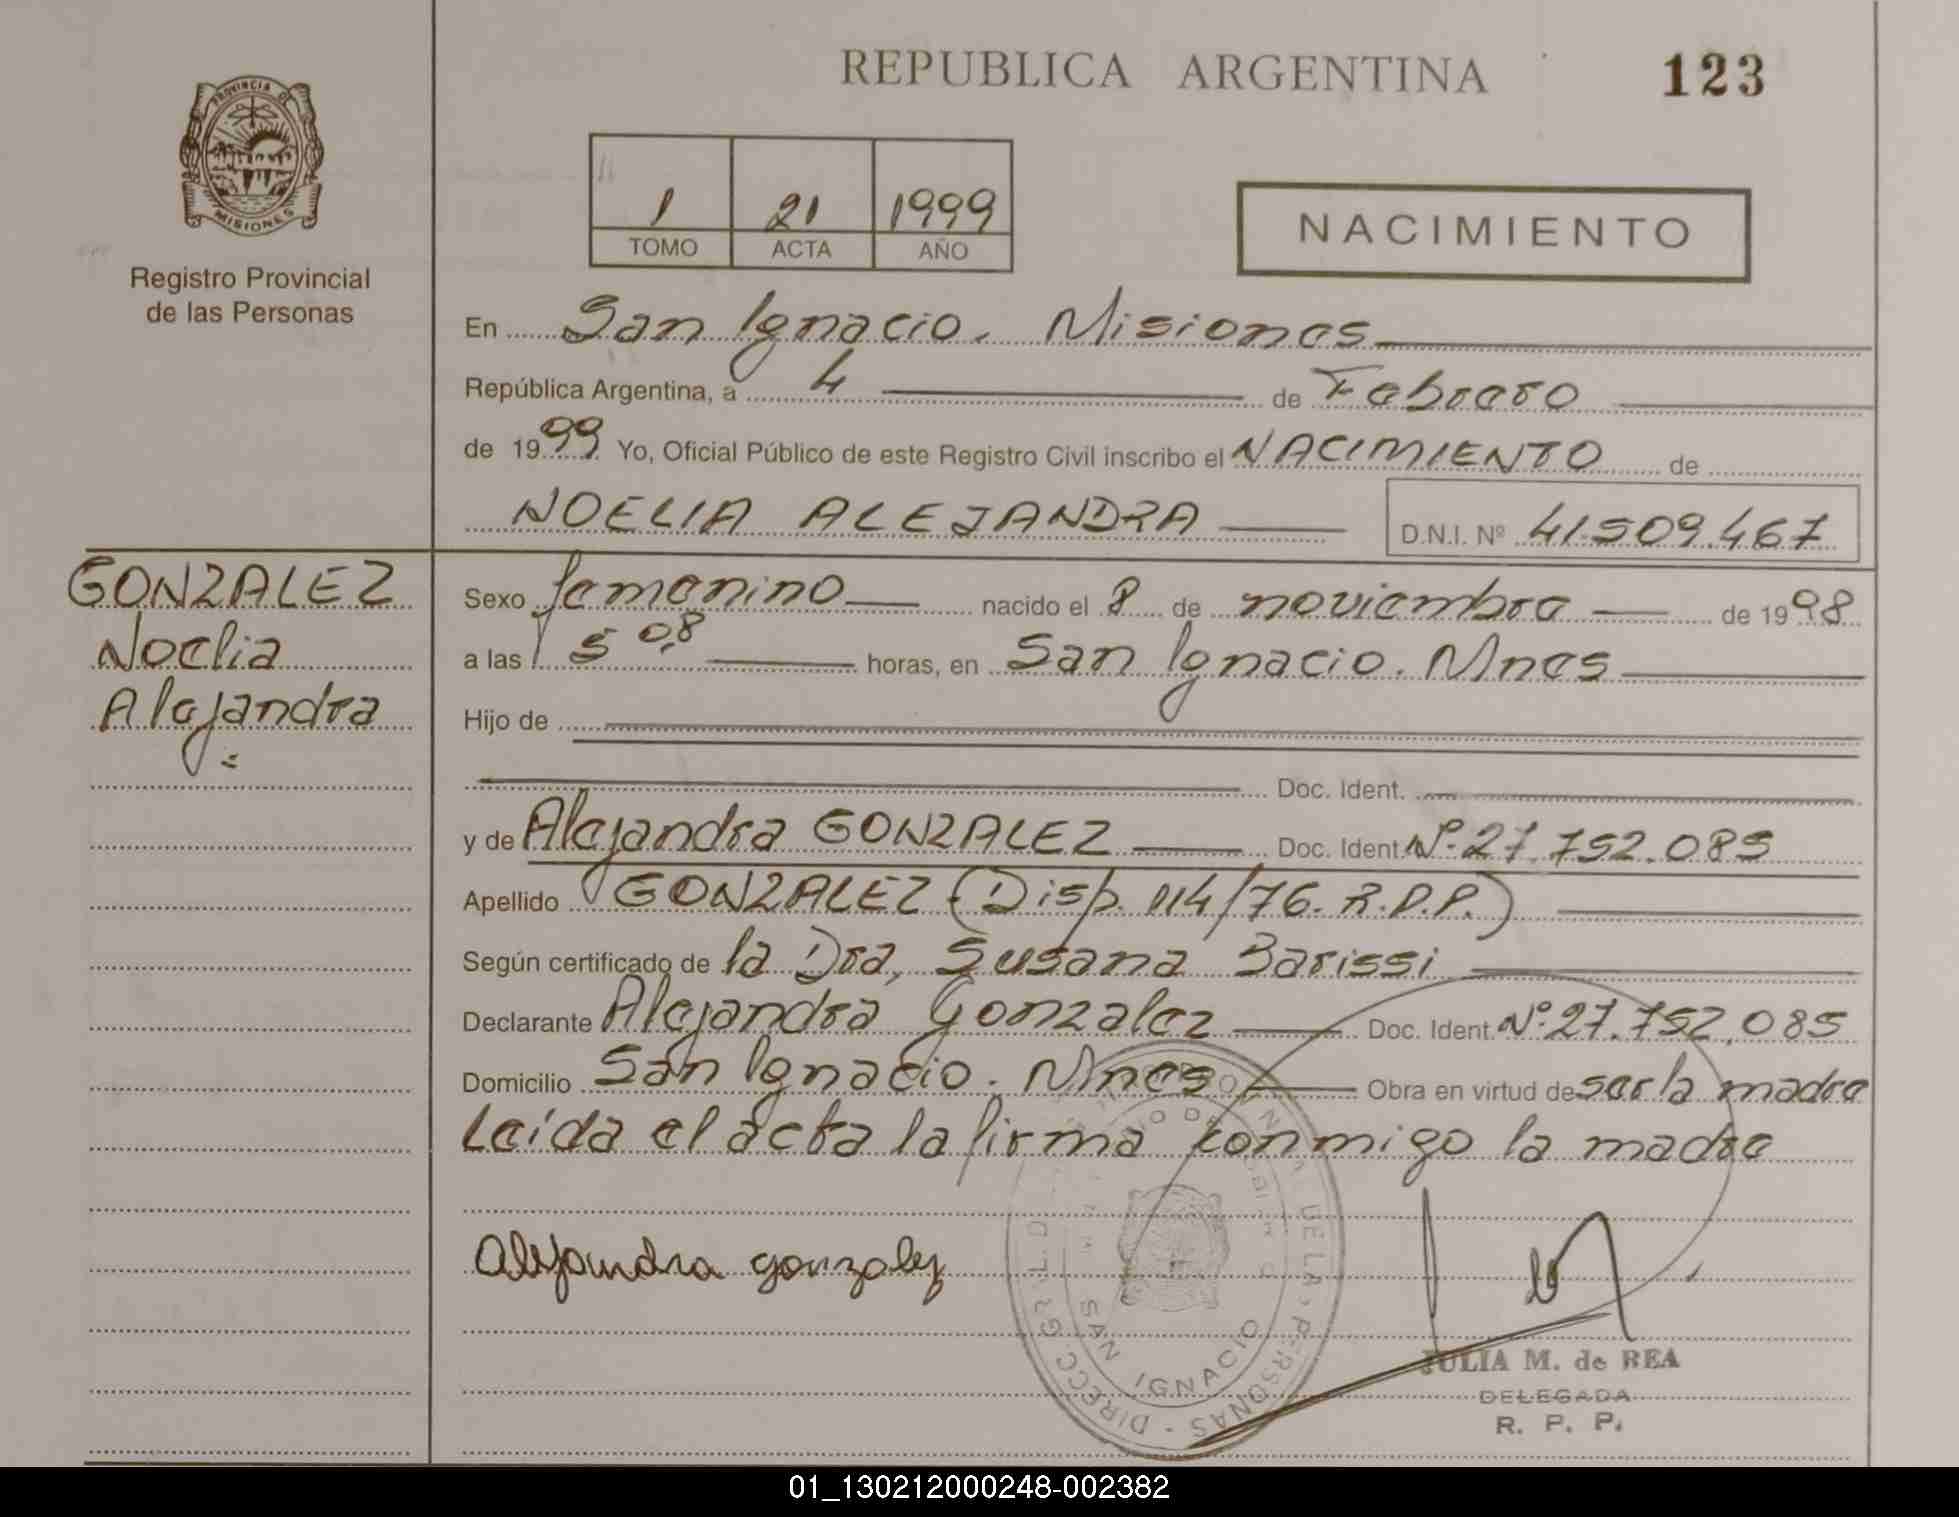 REPUBLICA ARGENTINA
123
PROVINCIA DE
MISIONES
Registro Provincial
de las Personas
1 21 1999
TOMO ACTA AÑO
NACIMIENTO
En San Ignacio. Misiones
República Argentina, a 4 de Febrero
de 1999 Yo, Oficial Público de este Registro Civil inscribo el NACIMIENTO de
NOELIA ALEJANDRA D.N.I. Nº 41.509.467
GONZALEZ
Noelia
Alejandra
Sexo femenino nacido el 8 de noviembre de 1998
a las 5 08 horas, en San Ignacio. Mnes
Hijo de
Doc. Ident.
y de Alejandra GONZALEZ Doc. Ident. Nº 27.752.085
Apellido GONZALEZ (Disp. 114/76. R.P.P.)
Según certificado de la Dra, Susana Barissi
Declarante Alejandra Gonzalez Doc. Ident. Nº 27.752.085
Domicilio San Ignacio. Mnes Obra en virtud de ser la madre
Leída el acta la firma conmigo la madre
Alejandra gonzalez
SAN IGNACIO
JULIA M. de REA
DELEGADA
R. P. P.
01_130212000248-002382